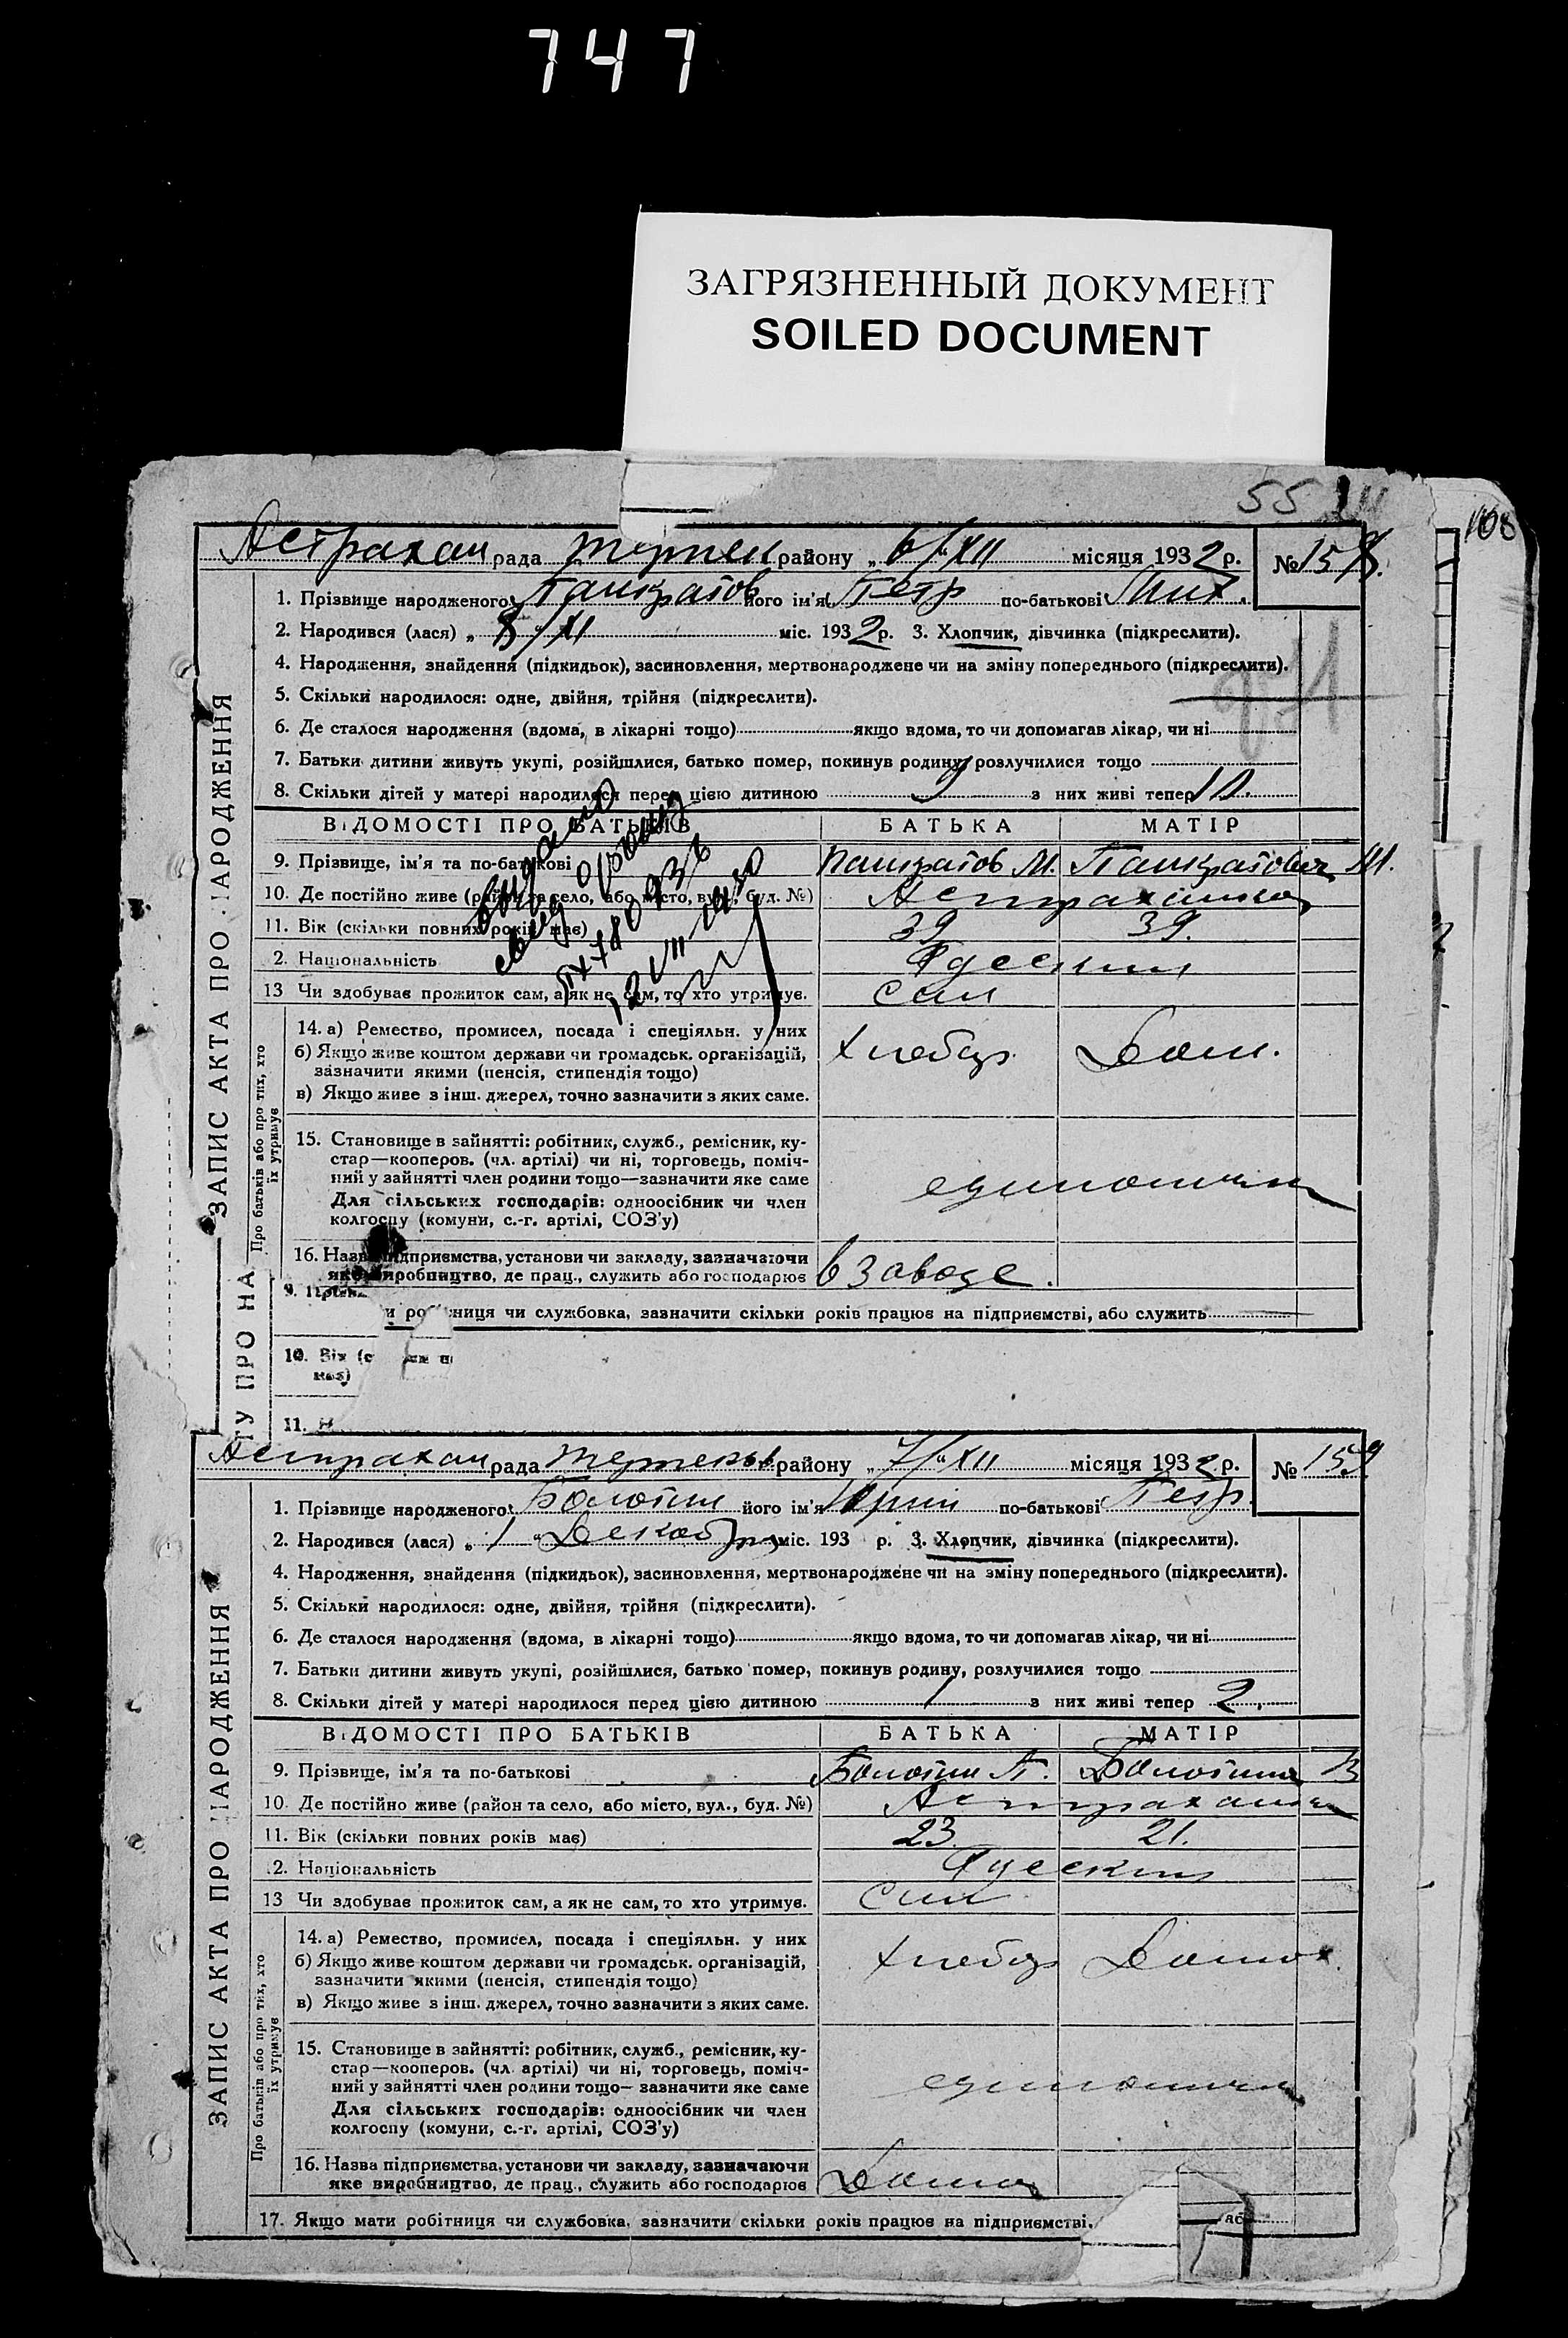 747
ЗАГРЯЗНЕННЫЙ ДОКУМЕНТ
SOILED DOCUMENT
55
108
Астрахан рада район у „ 6/"XII місяця 1932 р. № 158.
1. Прізвище народженого Панкратов його ім'я Петр по-батькові Мих.
2. Народився (лася) „ 8/"XI міс. 1932 р. 3. Хлопчик, дівчинка (підкреслити).
4. Народження, знайдення (підкидьок), засиновлення, мертвонароджене чи на зміну попереднього (підкреслити).
5. Скільки народилося: одне, двійня, трійня (підкреслити).
6. Де сталося народження (вдома, в лікарні тощо) якщо вдома, то чи допомагав лікар, чи ні
7. Батьки дитини живуть укупі, розійшлися, батько помер, покинув родину, розлучилися тощо
8. Скільки дітей у матері народилося перед цією дитиною 9 з них живі тепер 10.
ВІДОМОСТІ ПРО БАТЬКІВ БАТЬКА МАТІР
9. Прізвище, ім'я та по-батькові Панкратов М. М.
10. Де постійно живе (район та село, або місто, вул., буд. №) Астраханка
11. Вік (скільки повних років має) 39 39.
2. Національність Русские
13 Чи здобуває прожиток сам, а як не сам, то хто утримує. сам
14. а) Ремество, промисел, посада і спеціяльн. у них Хлебор. Дом.
б) Якщо живе коштом держави чи громадськ. організацій,
зазначити якими (пенсія, стипендія тощо)
в) Якщо живе з інш. джерел, точно зазначити з яких саме.
15. Становище в зайнятті: робітник, служб., ремісник, ку-
стар—кооперов. (чл. артілі) чи ні, торговець, поміч-
ний у зайнятті член родини тощо—зазначити яке саме
Для сільських господарів: одноосібник чи член
колгоспу (комуни, с.-г. артілі, СОЗ'у)
единоличн
16. Назва підприємства, установи чи закладу, зазначаючи
яке виробництво, де прац., служить або господарює в заводе.
ниця чи службовка, зазначити скільки років працює на підприємстві, або служить
ЗАПИС АКТА ПРО НАРОДЖЕННЯ
Про батьків або про тих, хто
їх утримує
ТУ ПРО НА
10. Вік (с
11. Н
Астрахан рада район у „ 7/"XII місяця 1932 р. № 159
1. Прізвище народженого Болотин його ім'я Юрий по-батькові Петр.
2. Народився (лася) „ 1 " Декабря міс. 193 р. 3. Хлопчик, дівчинка (підкреслити).
4. Народження, знайдення (підкидьок), засиновлення, мертвонароджене чи на зміну попереднього (підкреслити).
5. Скільки народилося: одне, двійня, трійня (підкреслити).
6. Де сталося народження (вдома, в лікарні тощо) якщо вдома, то чи допомагав лікар, чи ні
7. Батьки дитини живуть укупі, розійшлися, батько помер, покинув родину, розлучилися тощо
8. Скільки дітей у матері народилося перед цією дитиною 1 з них живі тепер 2.
ВІДОМОСТІ ПРО БАТЬКІВ БАТЬКА МАТІР
9. Прізвище, ім'я та по-батькові Болотин П. Болотина В
10. Де постійно живе (район та село, або місто, вул., буд. №) Астраханка
11. Вік (скільки повних років має) 23 21.
2. Національність Русские
13 Чи здобуває прожиток сам, а як не сам, то хто утримує. сам
14. а) Ремество, промисел, посада і спеціяльн. у них Хлебор Домох.
б) Якщо живе коштом держави чи громадськ. організацій,
зазначити якими (пенсія, стипендія тощо)
в) Якщо живе з інш. джерел, точно зазначити з яких саме.
15. Становище в зайнятті: робітник, служб., ремісник, ку-
стар—кооперов. (чл. артілі) чи ні, торговець, поміч-
ний у зайнятті член родини тощо— зазначити яке саме
Для сільських господарів: одноосібник чи член
колгоспу (комуни, с.-г. артілі, СОЗ'у)
единоличн
16. Назва підприємства, установи чи закладу, зазначаючи
яке виробництво, де прац., служить або господарює Дома
17. Якщо мати робітниця чи службовка, зазначити скільки років працює на підприємстві, аб
ЗАПИС АКТА ПРО НАРОДЖЕННЯ
Про батьків або про тих, хто
їх утримує